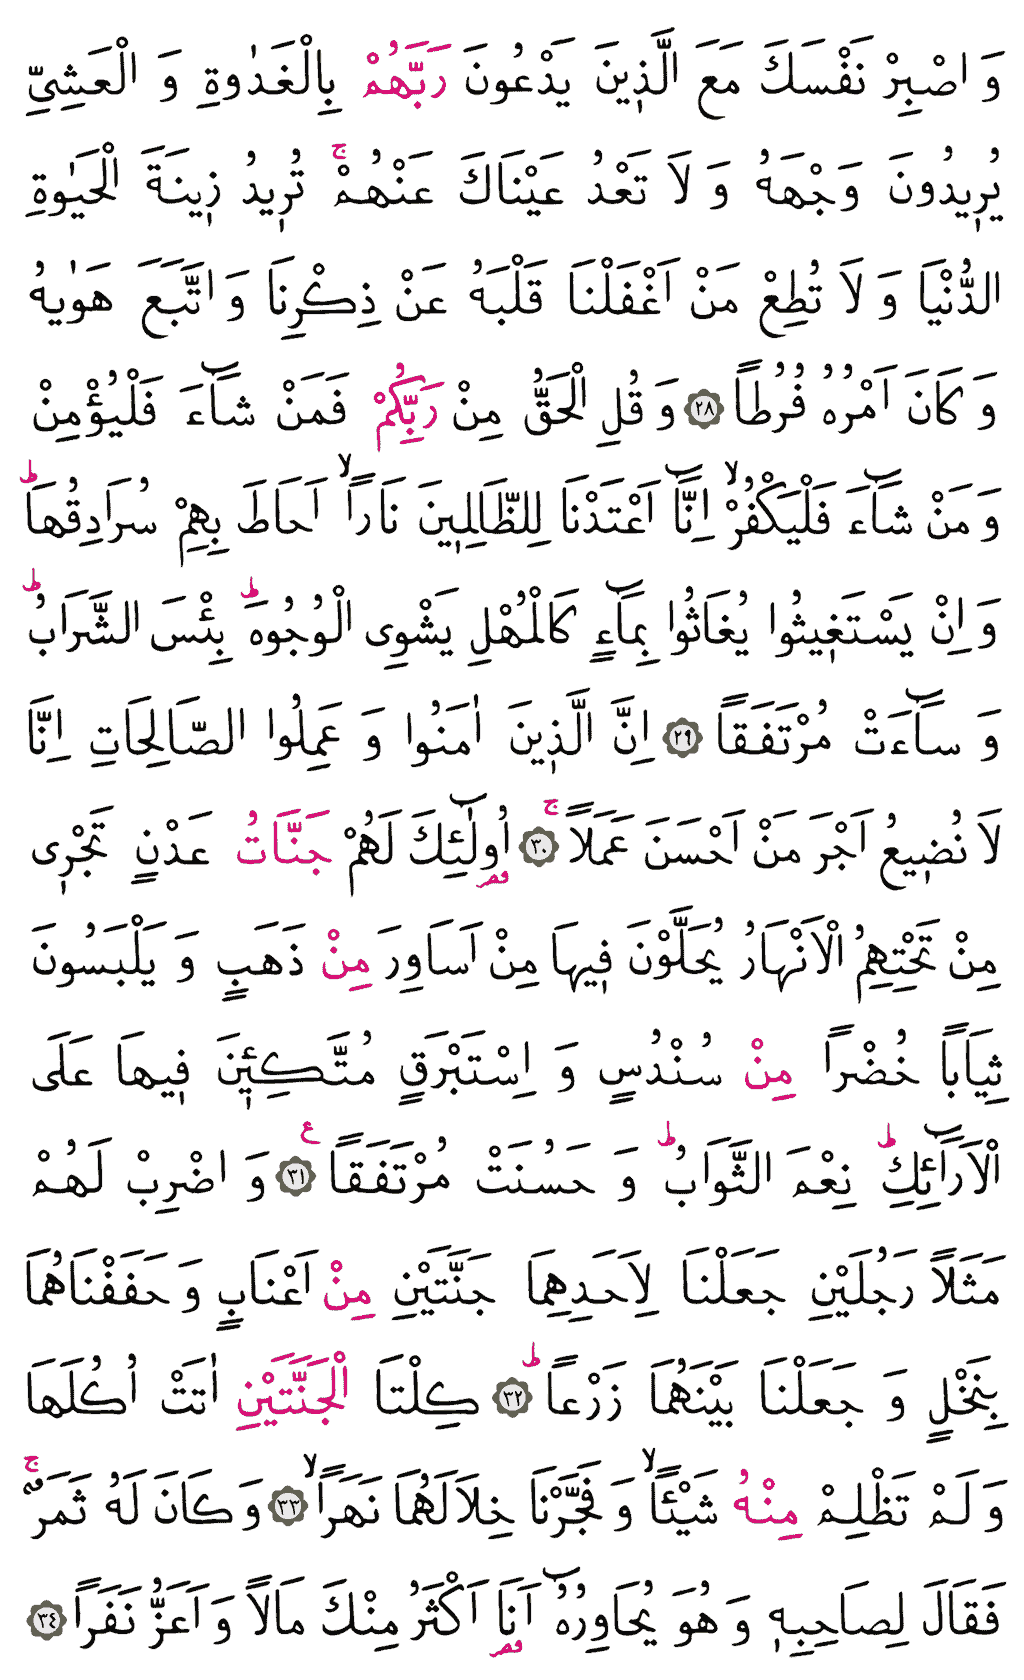 وَ اصْبِرْ نَفْسَكَ مَعَ الَّذ۪ينَ يَدْعُونَ رَبَّهُمْ بِالْغَدٰوةِ وَ الْعَشِيِّ
يُر۪يدُونَ وَجْهَهُ وَ لَا تَعْدُ عَيْنَاكَ عَنْهُمْۚ تُر۪يدُ ز۪ينَةَ الْحَيٰوةِ
الدُّنْيَا وَ لَا تُطِعْ مَنْ اَغْفَلْنَا قَلْبَهُ عَنْ ذِكْرِنَا وَ اتَّبَعَ هَوٰيهُ
وَ كَانَ اَمْرُهُ فُرُطاً ﴿٢٨﴾ وَ قُلِ الْحَقُّ مِنْ رَبِّكُمْ فَمَنْ شَاۤءَ فَلْيُؤْمِنْ
وَ مَنْ شَاۤءَ فَلْيَكْفُرْۙ اِنَّاۤ اَعْتَدْنَا لِلظَّالِم۪ينَ نَاراًۙ اَحَاطَ بِهِمْ سُرَادِقُهَاۜ
وَ اِنْ يَسْتَغ۪يثُوا يُغَاثُوا بِمَاۤءٍ كَالْمُهْلِ يَشْوِى الْوُجُوهَۜ بِئْسَ الشَّرَابُۜ
وَ سَاۤءَتْ مُرْتَفَقاً ﴿٢٩﴾ اِنَّ الَّذ۪ينَ اٰمَنُوا وَ عَمِلُوا الصَّالِحَاتِ اِنَّا
لَا نُض۪يعُ اَجْرَ مَنْ اَحْسَنَ عَمَلاًۚ ﴿٣٠﴾ اُولٰۤئِكَ لَهُمْ جَنَّاتُ عَدْنٍ تَجْر۪ى
مِنْ تَحْتِهِمُ الْاَنْهَارُ يُحَلَّوْنَ ف۪يهَا مِنْ اَسَاوِرَ مِنْ ذَهَبٍ وَ يَلْبَسُونَ
ثِيَاباً خُضْراً مِنْ سُنْدُسٍ وَ اِسْتَبْرَقٍ مُتَّكِئ۪ينَ ف۪يهَا عَلَى
الْاَرَاۤئِكِۜ نِعْمَ الثَّوَابُۜ وَ حَسُنَتْ مُرْتَفَقاً ﴿٣١﴾ ع وَ اضْرِبْ لَهُمْ
مَثَلاً رَجُلَيْنِ جَعَلْنَا لِاَحَدِهِمَا جَنَّتَيْنِ مِنْ اَعْنَابٍ وَ حَفَفْنَاهُمَا
بِنَخْلٍ وَ جَعَلْنَا بَيْنَهُمَا زَرْعاًۜ ﴿٣٢﴾ كِلْتَا الْجَنَّتَيْنِ اٰتَتْ اُكُلَهَا
وَ لَمْ تَظْلِمْ مِنْهُ شَيْئاًۙ وَ فَجَّرْنَا خِلَالَهُمَا نَهَراًۙ ﴿٣٣﴾ وَ كَانَ لَهُ ثَمَرٌۚ
فَقَالَ لِصَاحِبِه۪ وَ هُوَ يُحَاوِرُهُۤ اَنَا اَكْثَرُ مِنْكَ مَالاً وَ اَعَزُّ نَفَراً ﴿٣٤﴾